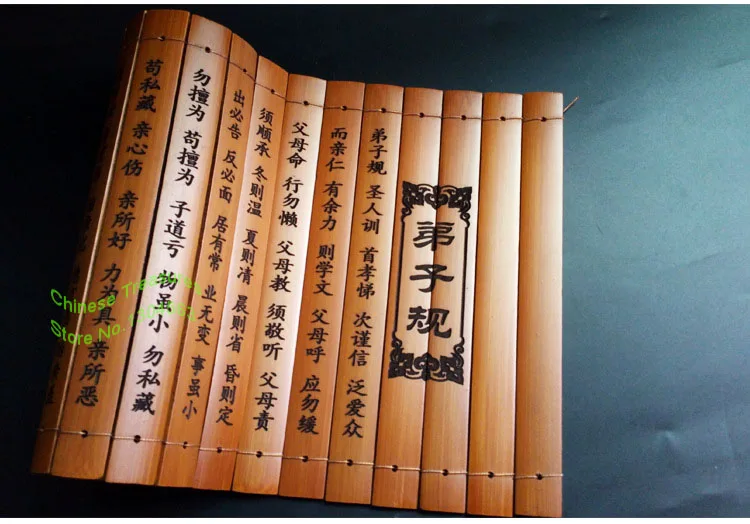 弟子规
弟子规 圣人训 首孝悌 次谨信 泛爱众
而亲仁 有余力 则学文 父母呼 应勿缓
父母命 行勿懒 父母教 须敬听 父母责
须顺承 冬则温 夏则清 晨则省 昏则定
出必告 反必面 居有常 业无变 事虽小
勿擅为 苟擅为 子道亏 物虽小 勿私藏
苟私藏 亲心伤 亲所好 力为具 亲所恶
Chinese Treasures
Store No.